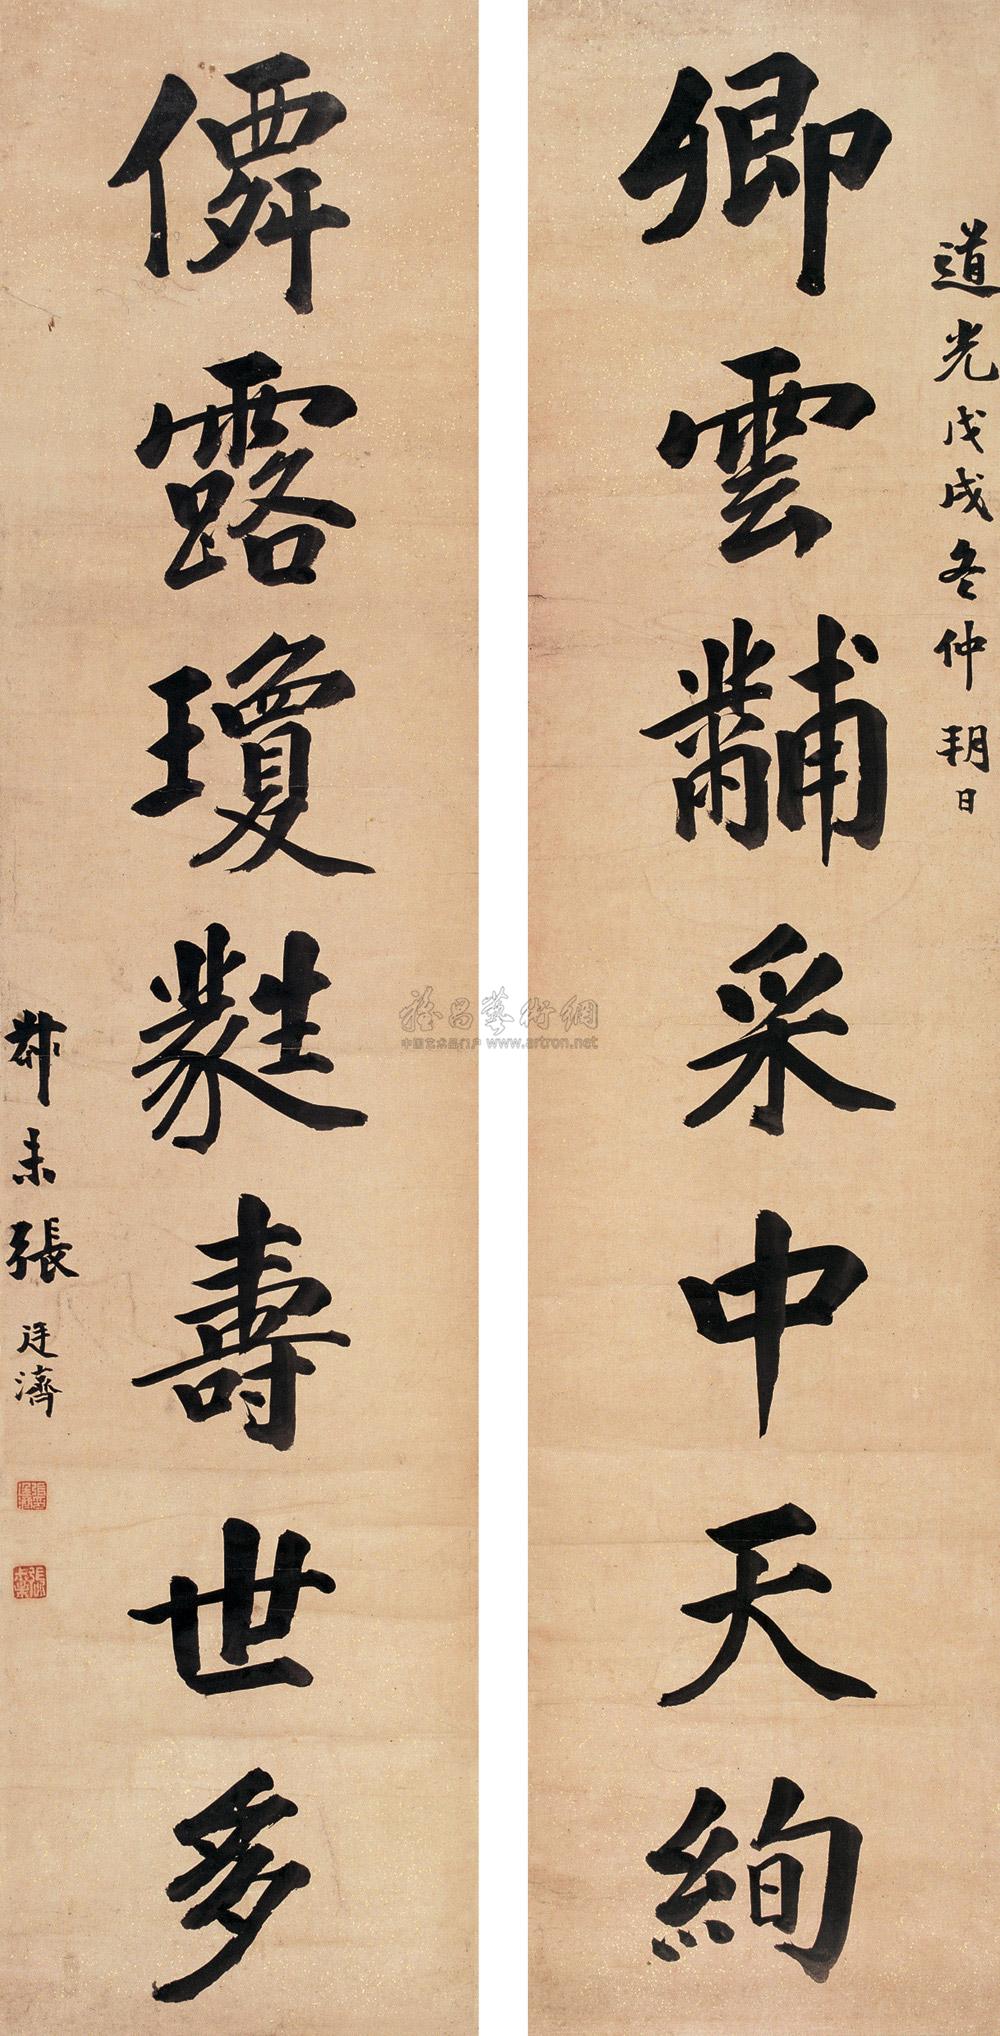 道光戊戌冬仲朔日
卿雲黼采中天絢
僊露瓊蕤壽世多
叔未張廷濟
雅昌藝術網
中国艺术品门户 www.artron.net